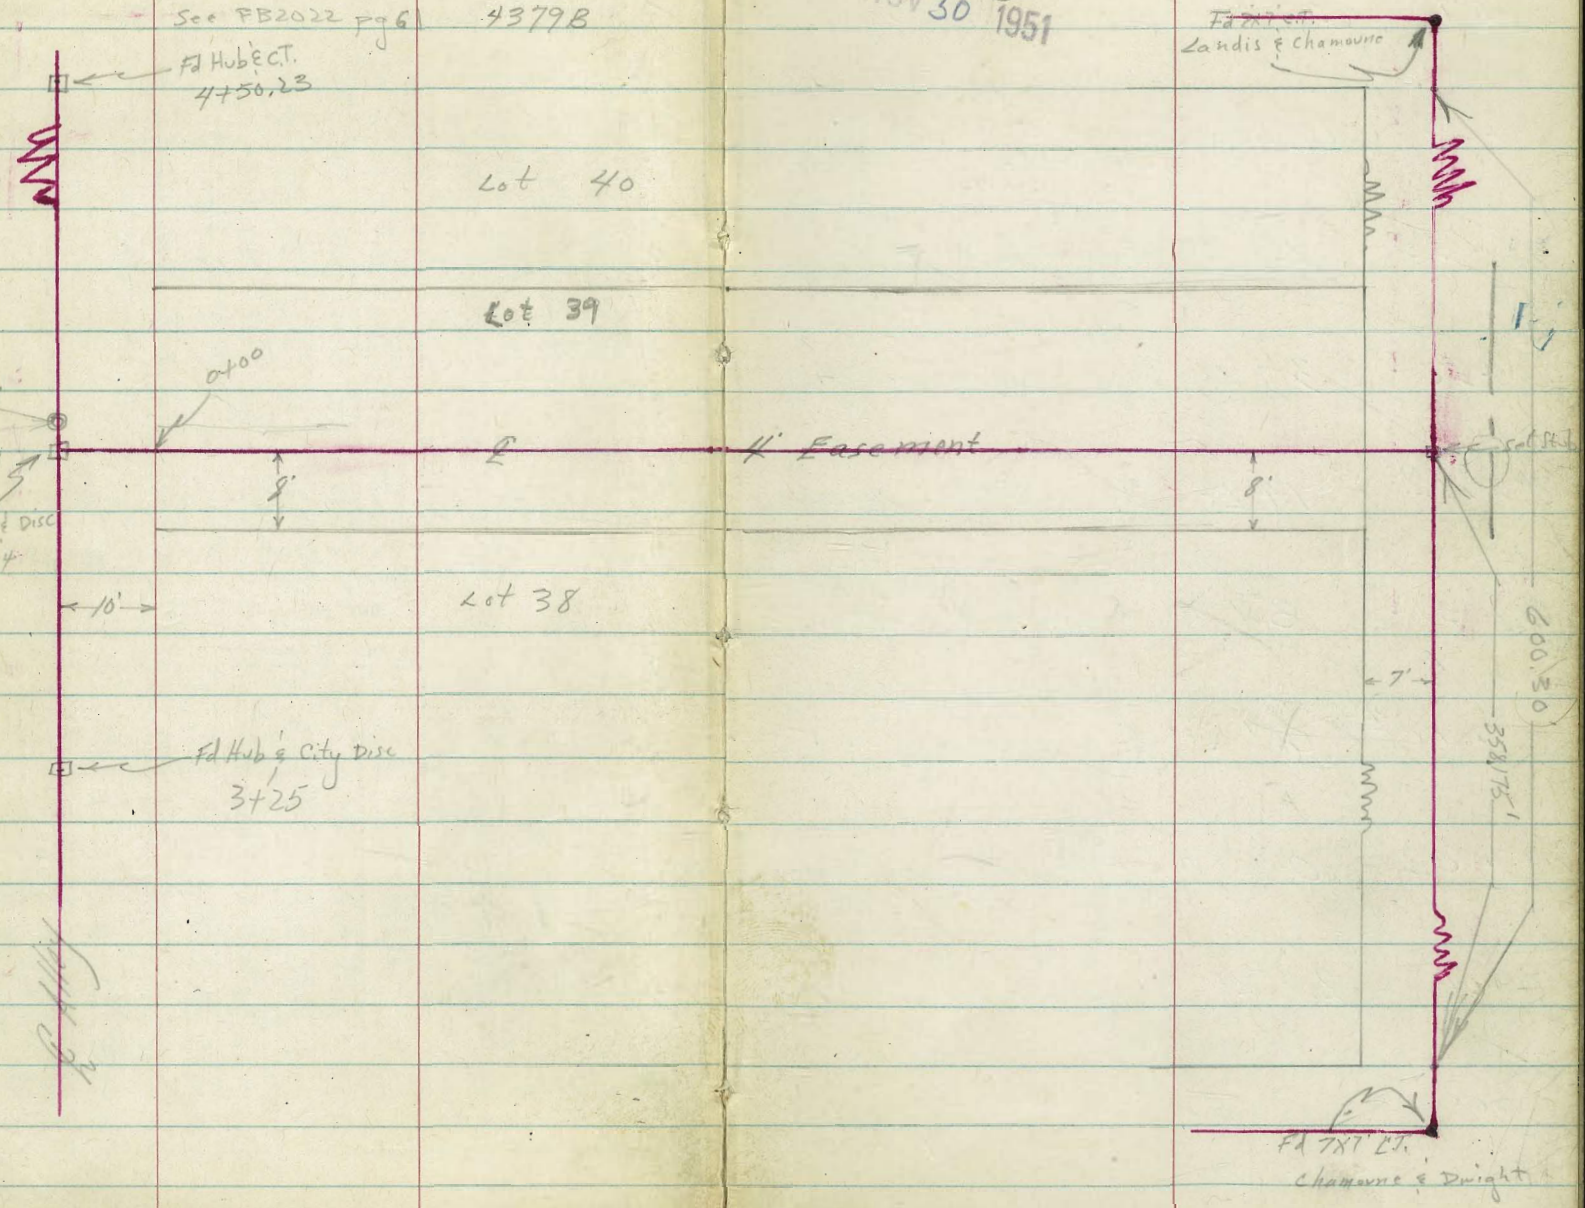 See FB2022 pg 6
4379B
30 1951
Fd 7x7' C.T.
Landis & Chamoune
Fd Hub & C.T.
4+50.23
Lot 40
Lot 39
0+00
℄ 4' Easement
8'
8'
Set Stub
& Disc
10'
Lot 38
7'
600.30
358.175'
Fd Hub & City Disc
3+25
℄ Alley
Fd 7x7' C.T.
Chamoune & Dwight